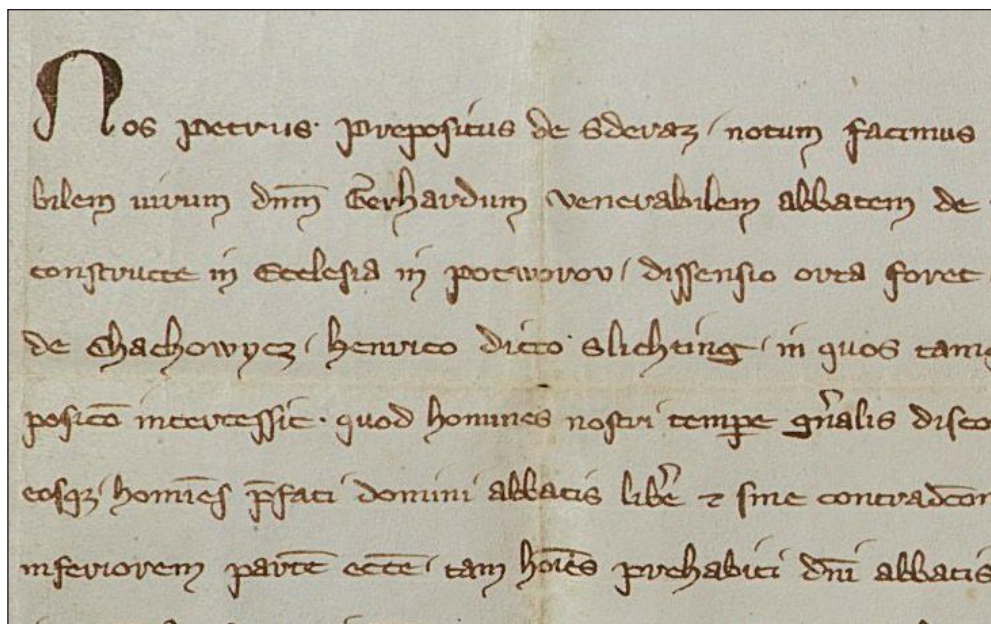 Nos Petrus · Prepositus de Sderaz / notum facimus
bilem uirum dnm̄ Gerhardum venerabilem abbatem de
constructe in Ecclesia in potworov / dissensio orta foret
de Chachowycz / henrico dicto · Slichting · in quos
posicō intercessit · quod homines nostri temꝑe gn̄alis
eosqꝫ / homiēs p̄fati domini abbatis libē ⁊ sine
inferiorem partē eccē / tam hoīēs prehabiti dn̄i abbatis